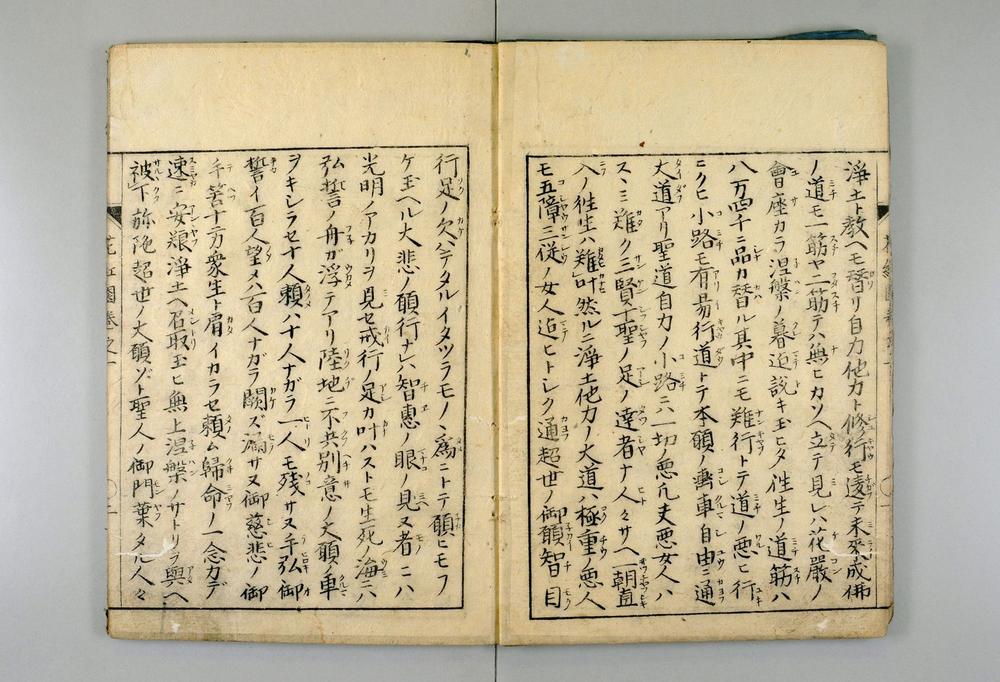 淨土ト教ヘモ替リ自力他力ト修行モ逺テ未來成佛
ノ道モ一筋ヤ二筋テハ無ヒカソヘ立テ見レハ花嚴ノ
會座カラ涅槃ノ暮迠説キ玉ヒタ往生ノ道筋ハ
八万四千ニ品カ替ル其中ニモ難行トテ道ノ悪ヒ行
ニクヒ小路モ有易行道トテ本願ノ乗車自由ニ通
大道アリ聖道自力ノ小路ニハ一切ノ悪凡夫悪女人ハ
スヽミ難ク三賢十聖ノ足ノ達者ナ人々サヘ一朝直
入ノ往生ハ難叶然ルニ淨土他力ノ大道ハ極重ノ悪人
モ五障三従ノ女人迠ヒトシク通超世ノ御願智目
行足ノ欠ケタルイタツラモノヽ爲ニトテ願ヒモフ
ケ玉ヘル大悲ノ願行ナレハ智恵ノ眼ノ見ヌ者ニハ
光明ノアカリヲ見セ戒行足カ叶ハストモ生死ノ海ニハ
弘誓ノ舟ガ浮テアリ陸地ニ不共別意ノ大願ノ車
ヲキシラセ十人頼ハ十人ナガラ一人モ残サヌ千弘御
誓イ百人望メハ百人ナガラ闕ズ漏サヌ御慈悲ノ御
手筈十方衆生ト肩イカラセ頼ム歸命ノ一念カデ
速ニ安粮淨土ヘ召取玉ヒ無上涅槃ノサトリヲ與ヘ
被下旀陁超世ノ大願ゾト聖人ノ御門葉タル人々